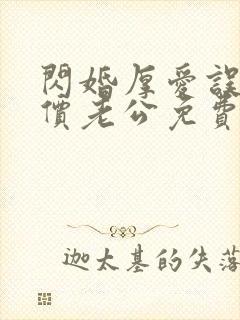 閃婚厚愛誤
價老公免費
迦太基的失落